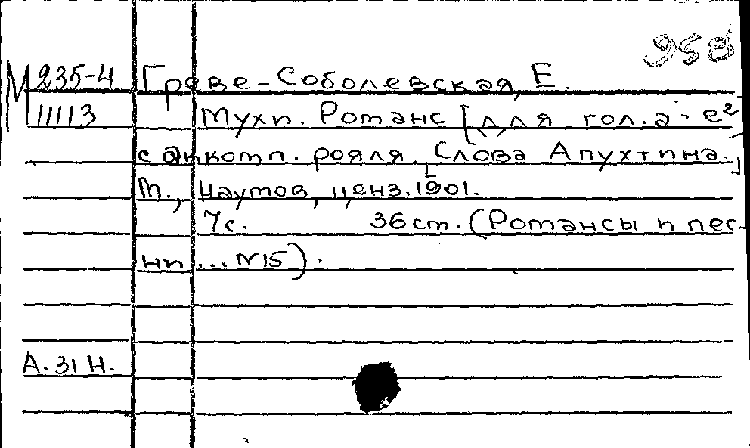 958
М 235-4 Граве-Соболевская, Е.
11113 Мухи. Романс [для гол. а - е²
с аккомп. рояля. Слова Апухтина.]
М., Наумов, ценз. [1901.
7с. 36 ст. (Романсы и пес-
ни ... N15).
А. 31 Н.